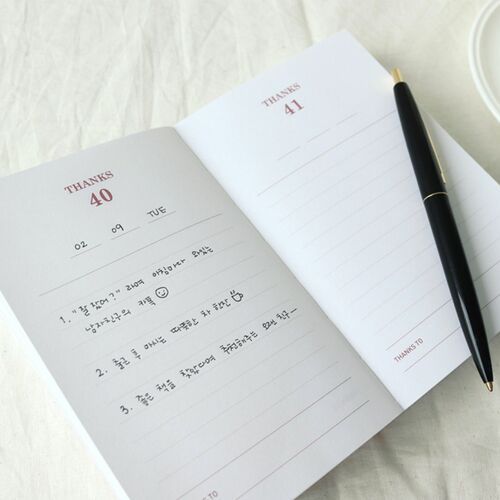 THANKS
40
02 09 TUE
1. "잘 잤어?" 라며 아침마다 와있는
남자친구의 카톡
2. 출근 후 마시는 따뜻한 차 한잔
3. 좋은 책을 찾았다며 추천해주는 오랜 친구—
THANKS TO
THANKS
41
THANKS TO